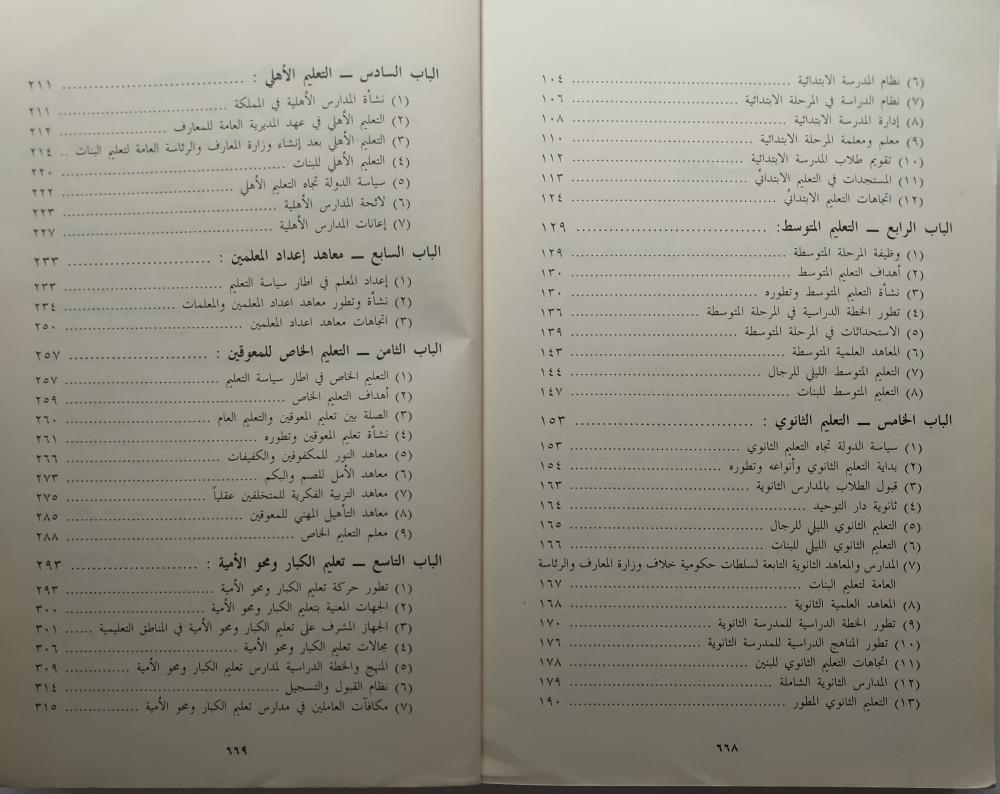 (٦) نظام المدرسة الابتدائية ........ ١٠٤
(٧) نظام الدراسة في المرحلة الابتدائية ........ ١٠٦
(٨) إدارة المدرسة الابتدائية ........ ١٠٨
(٩) معلم ومعلمة المرحلة الابتدائية ........ ١١٠
(١٠) تقويم طلاب المدرسة الابتدائية ........ ١١٢
(١١) المستجدات في التعليم الابتدائي ........ ١١٣
(١٢) اتجاهات التعليم الابتدائي ........ ١٢٤
الباب الرابع ــ التعليم المتوسط: ........ ١٢٩
(١) وظيفة المرحلة المتوسطة ........ ١٢٩
(٢) أهداف التعليم المتوسط ........ ١٣٠
(٣) نشأة التعليم المتوسط وتطوره ........ ١٣٠
(٤) تطور الخطة الدراسية في المرحلة المتوسطة ........ ١٣٦
(٥) الاستحداثات في المرحلة المتوسطة ........ ١٣٩
(٦) المعاهد العلمية المتوسطة ........ ١٤٣
(٧) التعليم المتوسط الليلي للرجال ........ ١٤٤
(٨) التعليم المتوسط للبنات ........ ١٤٧
الباب الخامس ــ التعليم الثانوي : ........ ١٥٣
(١) سياسة الدولة تجاه التعليم الثانوي ........ ١٥٣
(٢) بداية التعليم الثانوي وأنواعه وتطوره ........ ١٥٤
(٣) قبول الطلاب بالمدارس الثانوية ........ ١٦٣
(٤) ثانوية دار التوحيد ........ ١٦٤
(٥) التعليم الثانوي الليلي للرجال ........ ١٦٥
(٦) التعليم الثانوي الليلي للبنات ........ ١٦٦
(٧) المدارس والمعاهد الثانوية التابعة لسلطات حكومية خلاف وزارة المعارف والرئاسة
العامة لتعليم البنات ........ ١٦٧
(٨) المعاهد العلمية الثانوية ........ ١٦٨
(٩) تطور الخطة الدراسية للمدرسة الثانوية ........ ١٧٠
(١٠) تطور المناهج الدراسية للمدرسة الثانوية ........ ١٧٦
(١١) اتجاهات التعليم الثانوي للبنين ........ ١٧٨
(١٢) المدارس الثانوية الشاملة ........ ١٧٩
(١٣) التعليم الثانوي المطور ........ ١٩٠
٦٦٨
الباب السادس ــ التعليم الأهلي : ........ ٢١١
(١) نشأة المدارس الأهلية في المملكة ........ ٢١١
(٢) التعليم الأهلي في عهد المديرية العامة للمعارف ........ ٢١٢
(٣) التعليم الأهلي بعد إنشاء وزارة المعارف والرئاسة العامة لتعليم البنات .. ٢١٤
(٤) التعليم الأهلي للبنات ........ ٢٢٠
(٥) سياسة الدولة تجاه التعليم الأهلي ........ ٢٢٢
(٦) لائحة المدارس الأهلية ........ ٢٢٣
(٧) إعانات المدارس الأهلية ........ ٢٢٧
الباب السابع ــ معاهد إعداد المعلمين : ........ ٢٣٣
(١) إعداد المعلم في اطار سياسة التعليم ........ ٢٣٣
(٢) نشأة وتطور معاهد اعداد المعلمين والمعلمات ........ ٢٣٤
(٣) اتجاهات معاهد اعداد المعلمين ........ ٢٥٠
الباب الثامن ــ التعليم الخاص للمعوقين : ........ ٢٥٧
(١) التعليم الخاص في اطار سياسة التعليم ........ ٢٥٧
(٢) أهداف التعليم الخاص ........ ٢٥٩
(٣) الصلة بين تعليم المعوقين والتعليم العام ........ ٢٦٠
(٤) نشأة تعليم المعوقين وتطوره ........ ٢٦١
(٥) معاهد النور للمكفوفين والكفيفات ........ ٢٦٦
(٦) معاهد الأمل للصم والبكم ........ ٢٧٣
(٧) معاهد التربية الفكرية للمتخلفين عقلياً ........ ٢٧٥
(٨) معاهد التأهيل المهني للمعوقين ........ ٢٨٥
(٩) معلم التعليم الخاص ........ ٢٨٨
الباب التاسع ــ تعليم الكبار ومحو الأمية : ........ ٢٩٣
(١) تطور حركة تعليم الكبار ومحو الأمية ........ ٢٩٣
(٢) الجهات المعنية بتعليم الكبار ومحو الأمية ........ ٣٠٠
(٣) الجهاز المشرف على تعليم الكبار ومحو الأمية في المناطق التعليمية ...... ٣٠١
(٤) مجالات تعليم الكبار ومحو الأمية ........ ٣٠٦
(٥) المنهج والخطة الدراسية لمدارس تعليم الكبار ومحو الأمية ........ ٣٠٩
(٦) نظام القبول والتسجيل ........ ٣١٤
(٧) مكافآت العاملين في مدارس تعليم الكبار ومحو الأمية ........ ٣١٥
٦٦٩